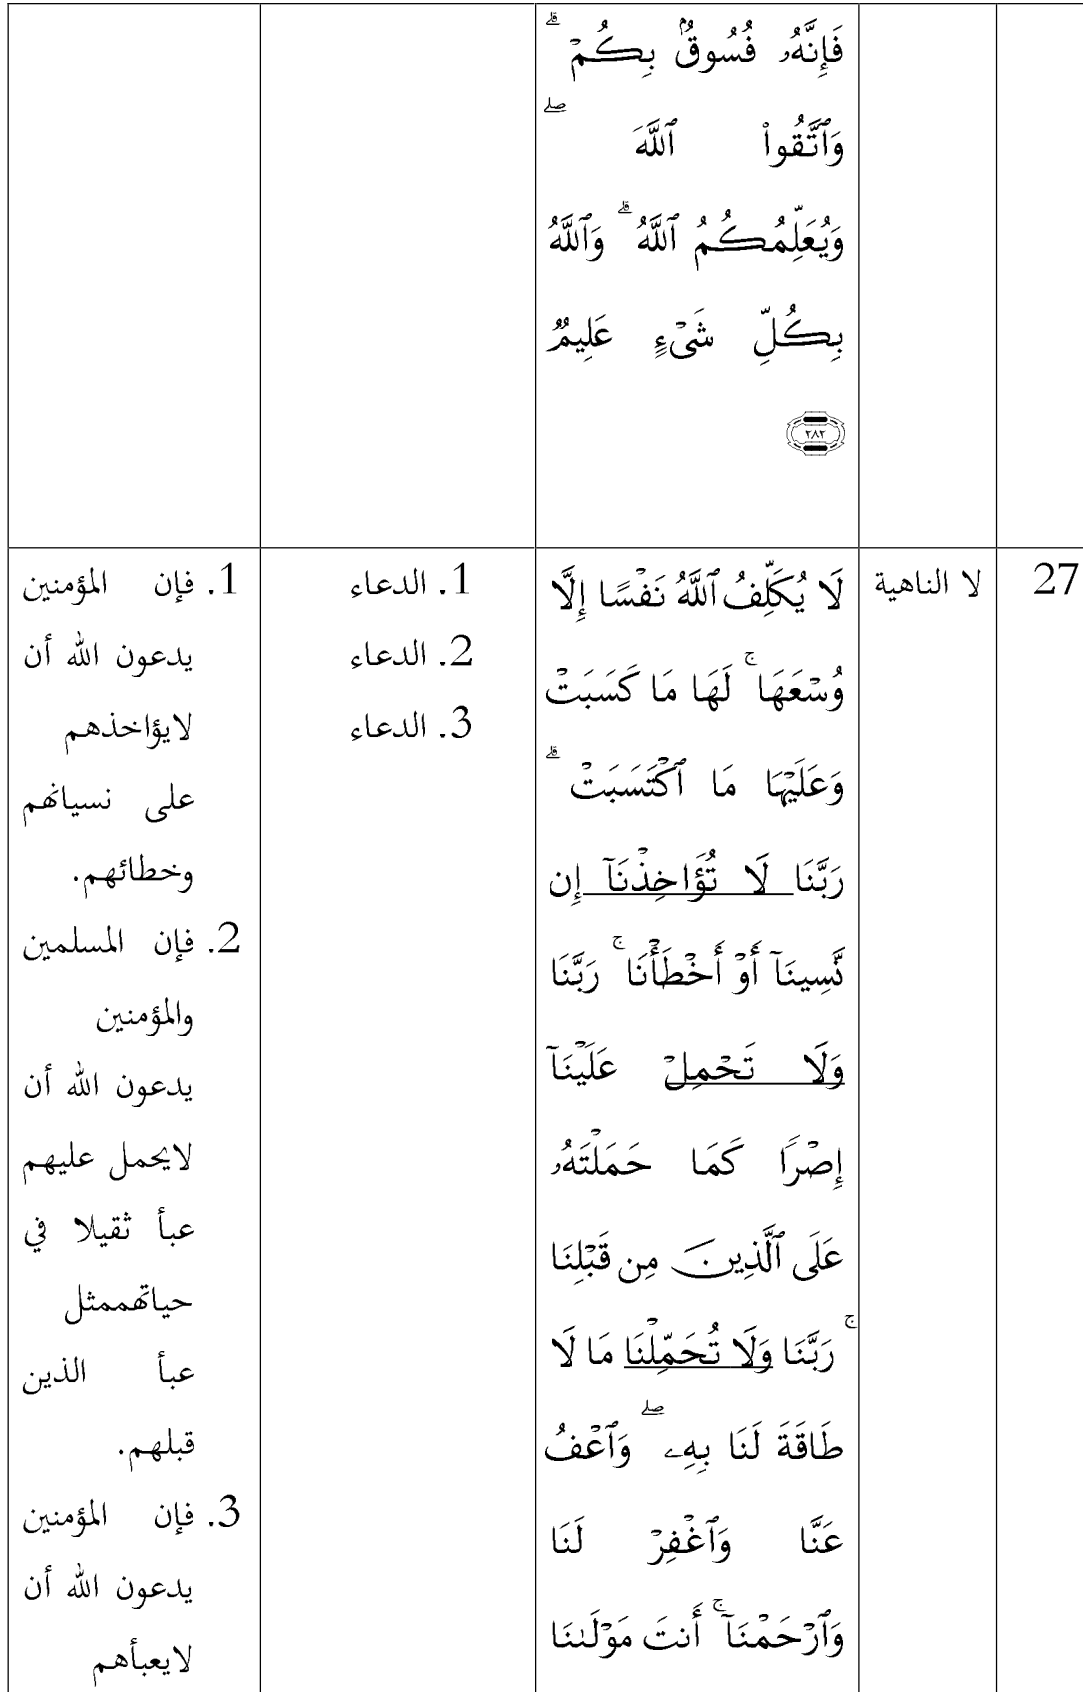 فَإِنَّهُۥ فُسُوقٌۢ بِكُمْ ۗ
وَٱتَّقُوا۟ ٱللَّهَ ۖ
وَيُعَلِّمُكُمُ ٱللَّهُ ۗ وَٱللَّهُ
بِكُلِّ شَىْءٍ عَلِيمٌ
٢٨٢
27
لا الناهية
لَا يُكَلِّفُ ٱللَّهُ نَفْسًا إِلَّا
وُسْعَهَا ۚ لَهَا مَا كَسَبَتْ
وَعَلَيْهَا مَا ٱكْتَسَبَتْ ۗ
رَبَّنَا لَا تُؤَاخِذْنَآ إِن
نَّسِينَآ أَوْ أَخْطَأْنَا ۚ رَبَّنَا
وَلَا تَحْمِلْ عَلَيْنَآ
إِصْرًا كَمَا حَمَلْتَهُۥ
عَلَى ٱلَّذِينَ مِن قَبْلِنَا
ۚ رَبَّنَا وَلَا تُحَمِّلْنَا مَا لَا
طَاقَةَ لَنَا بِهِۦ ۖ وَٱعْفُ
عَنَّا وَٱغْفِرْ لَنَا
وَٱرْحَمْنَآ ۚ أَنتَ مَوْلَىٰنَا
1. الدعاء
2. الدعاء
3. الدعاء
1. فإن المؤمنين
يدعون الله أن
لايؤاخذهم
على نسيانهم
وخطائهم.
2. فإن المسلمين
والمؤمنين
يدعون الله أن
لايحمل عليهم
عبأ ثقيلا في
حياتهممثل
عبأ الذين
قبلهم.
3. فإن المؤمنين
يدعون الله أن
لايعبأهم